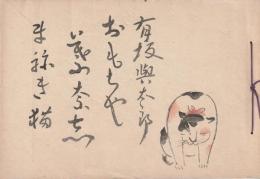 有坂與太郎
おもちや
葉山奈志
まねき猫